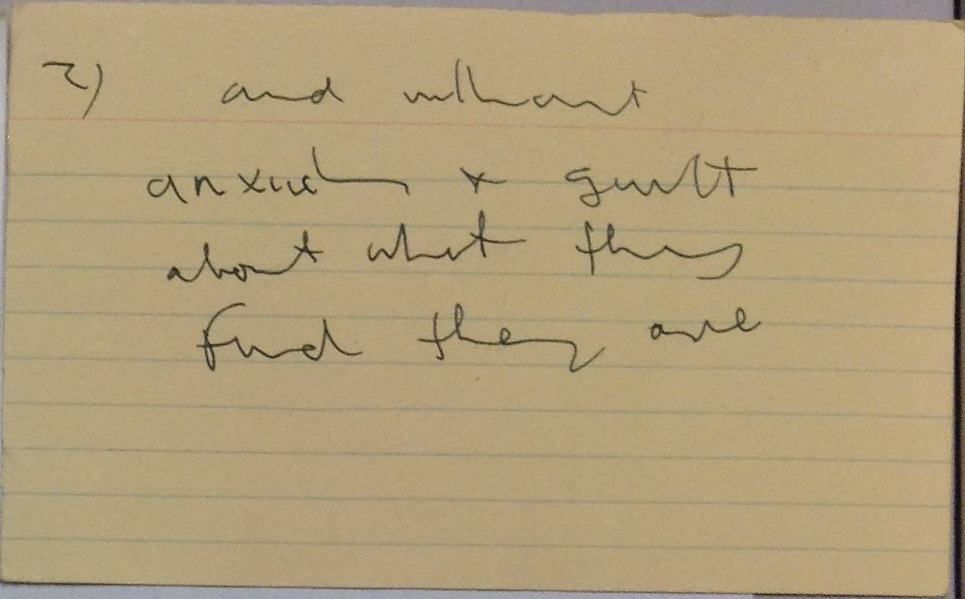 2) and without
anxiety & guilt
about what they
find they are